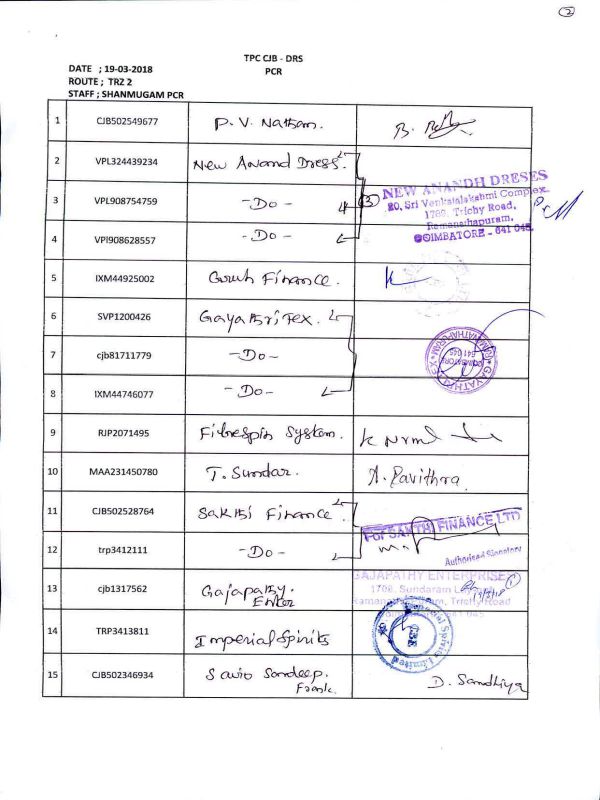 2
TPC CJB - DRS
DATE ; 19-03-2018
PCR
ROUTE ; TRZ 2
STAFF ; SHANMUGAM PCR
1 CJB502549677 P. V. Natham.
2 VPL324439234 New Anand Dress.
3 VPL908754759 -Do- 3
4 VPl908628557 -Do-
NEW ANANDH DRESES
20, Sri Venkatalakshmi Complex.
1789, Trichy Road,
Ramanathapuram,
COIMBATORE - 641 045.
5 IXM44925002 Guruh Finance.
6 SVP1200426 GayathriTex.
7 cjb81711779 -Do-
8 IXM44746077 -Do-
9 RJP2071495 Fibrespin System.
10 MAA231450780 T. Sundar. A. Pavithra
11 CJB502528764 Sakthi Finance
For SAKTHI FINANCE LTD
12 trp3412111 -Do-
Authorised Signatory
GAJAPATHY ENTERPRISE
13 cjb1317562 Gajapathy. Enter
1702, Sundaram
Trichy Road
14 TRP3413811 Imperial Spirits
15 CJB502346934 Savio Sandeep. Frank. D. Sandhiya